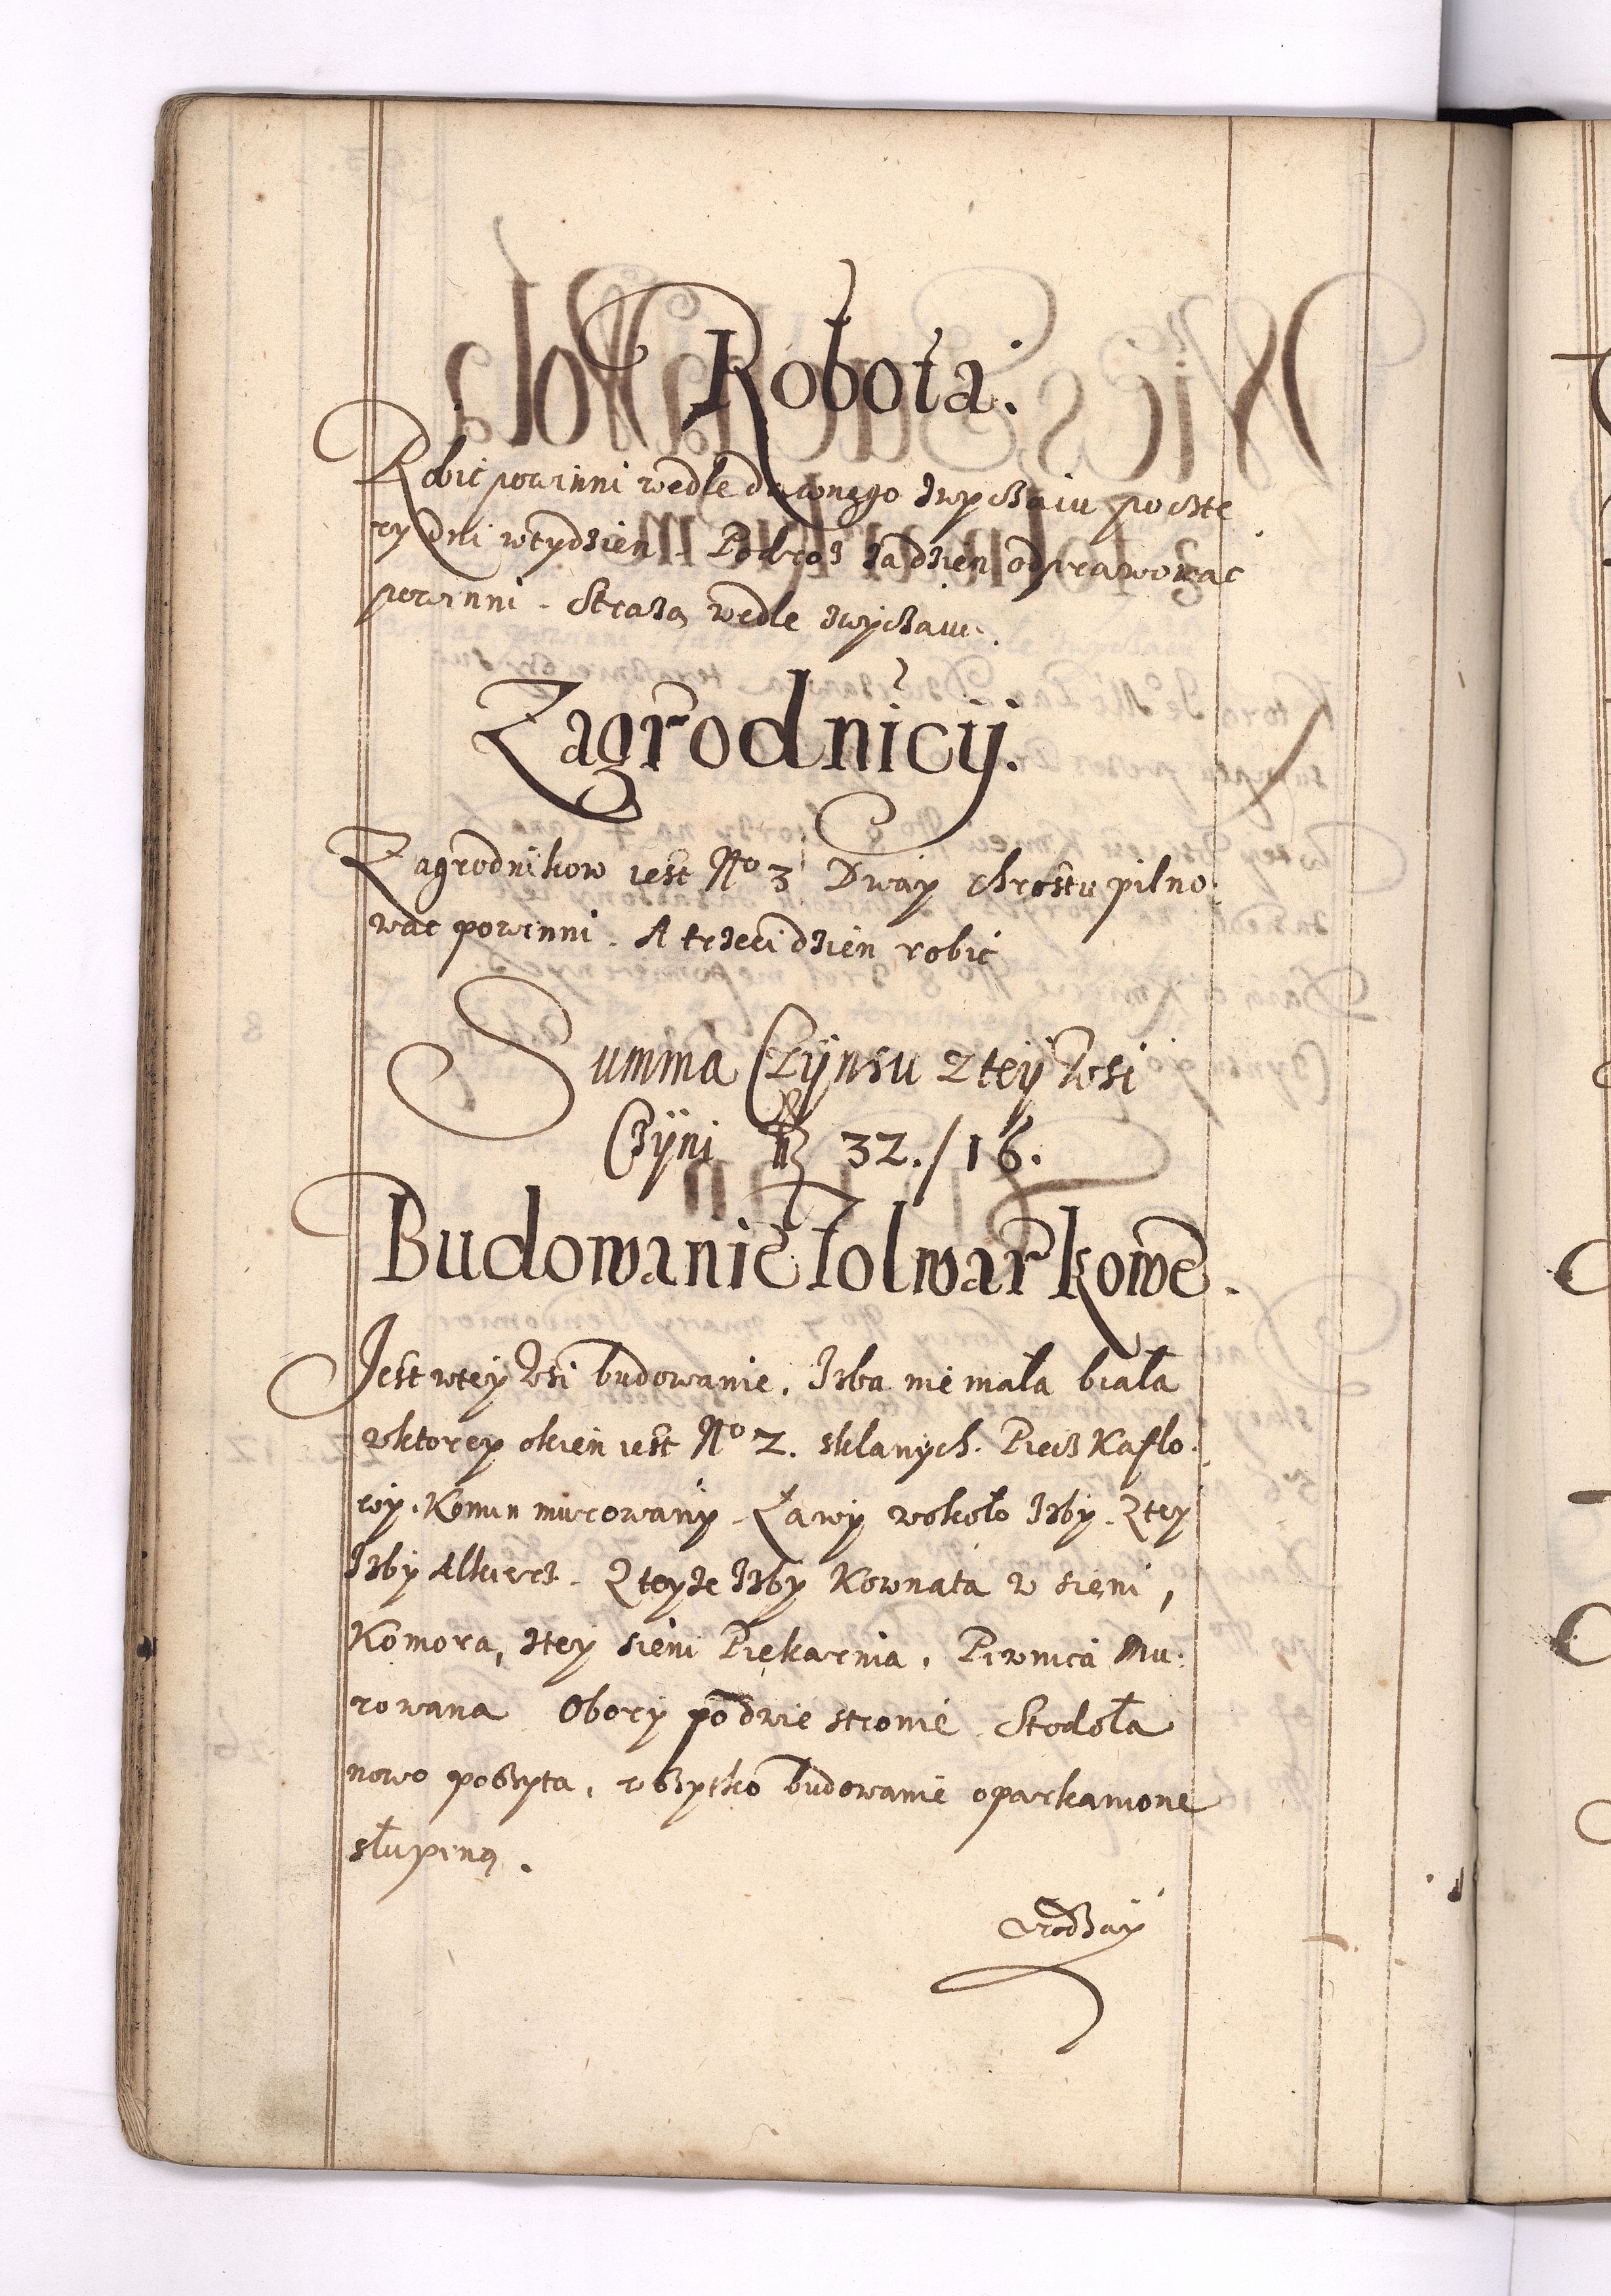 Robota.
Robic powinni wedle dawnego zwyczaiu po czte
ry dni w tydzien. Podroz za dzien odprawowac
powinni. Straza wedle zwyczaiu.
Zagrodnicy.
Zagrodnikow iest No 3 Dway chrostu pilno:
wac powinni. A trzeci dzien robic
Summa Czynsu z tey Wsi
Czyni 32./16.
Budowanie Folwarkowe.
Jest w tey Wsi budowanie. Izba nie mała biała
w ktorey okien iest No 2. sklanych. Piecz Kaflo:
wy. Komin murowany. Ławy wokoło Izby. Z tey
Izby Alkierz. Z teyze Izby Kownata w sieni,
Komora, z tey sieni Piekarnia. Piwnica Mu:
rowana Obory po dwie stronie. Stodoła
nowo poszyta, wszytko budowanie oparkanione
słupiną.
Urodzay